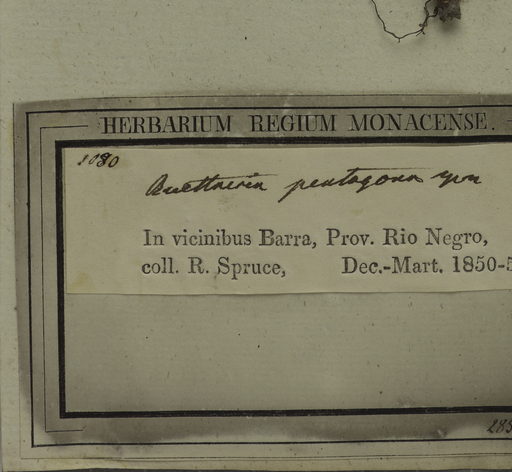 HERBARIUM REGIUM MONACENSE.
1080
pentagona
In vicinibus Barra, Prov. Rio Negro,
coll. R. Spruce, Dec.-Mart. 1850-5